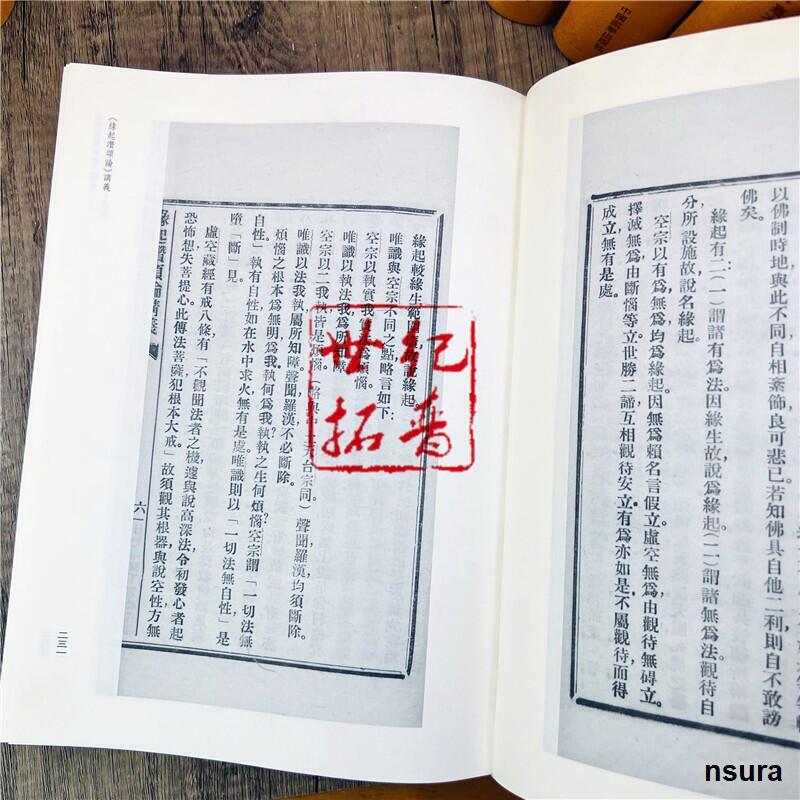 以佛制時地與此不同自相紊飾良可悲已若知佛具自他二利則自不敢謗
佛矣。
緣起有二：（一）謂諸有爲法因緣生故，說爲緣起（二）謂諸無爲法觀待自
分所設施故說名緣起。
空宗以有爲，無爲均爲緣起。因無爲賴名言假立。虛空無爲，由觀待無礙立。
擇滅無爲，由斷惱等立。世勝二諦互相觀待安立有爲亦如是不屬觀待而得
成立無有是處。
緣起較緣生範圍故說緣起。
唯識與空宗不同之點略言如下：
空宗以執實我實法爲煩惱
唯識以執法我爲所知障
空宗以二我執皆是煩惱（略與天台宗同）聲聞羅漢均須斷除。
唯識以法我執屬所知障聲聞羅漢不必斷除。
煩惱之根本爲無明爲我執何爲我？執執之生何煩惱空宗謂「一切法無
自性」執有自性如在水中求火無有是處唯識則以「一切法無自性」是
墮「斷」見。
虛空藏經有戒八條有「不觀聞法者之機遽與說高深法令初發心者起
恐怖想失菩提心。此傳法菩薩犯根本大戒。」故須觀其根器與說空性方無
緣起讚頌論講義
六一
《緣起讚頌論》講義
二三一
世紀
拓書
nsura